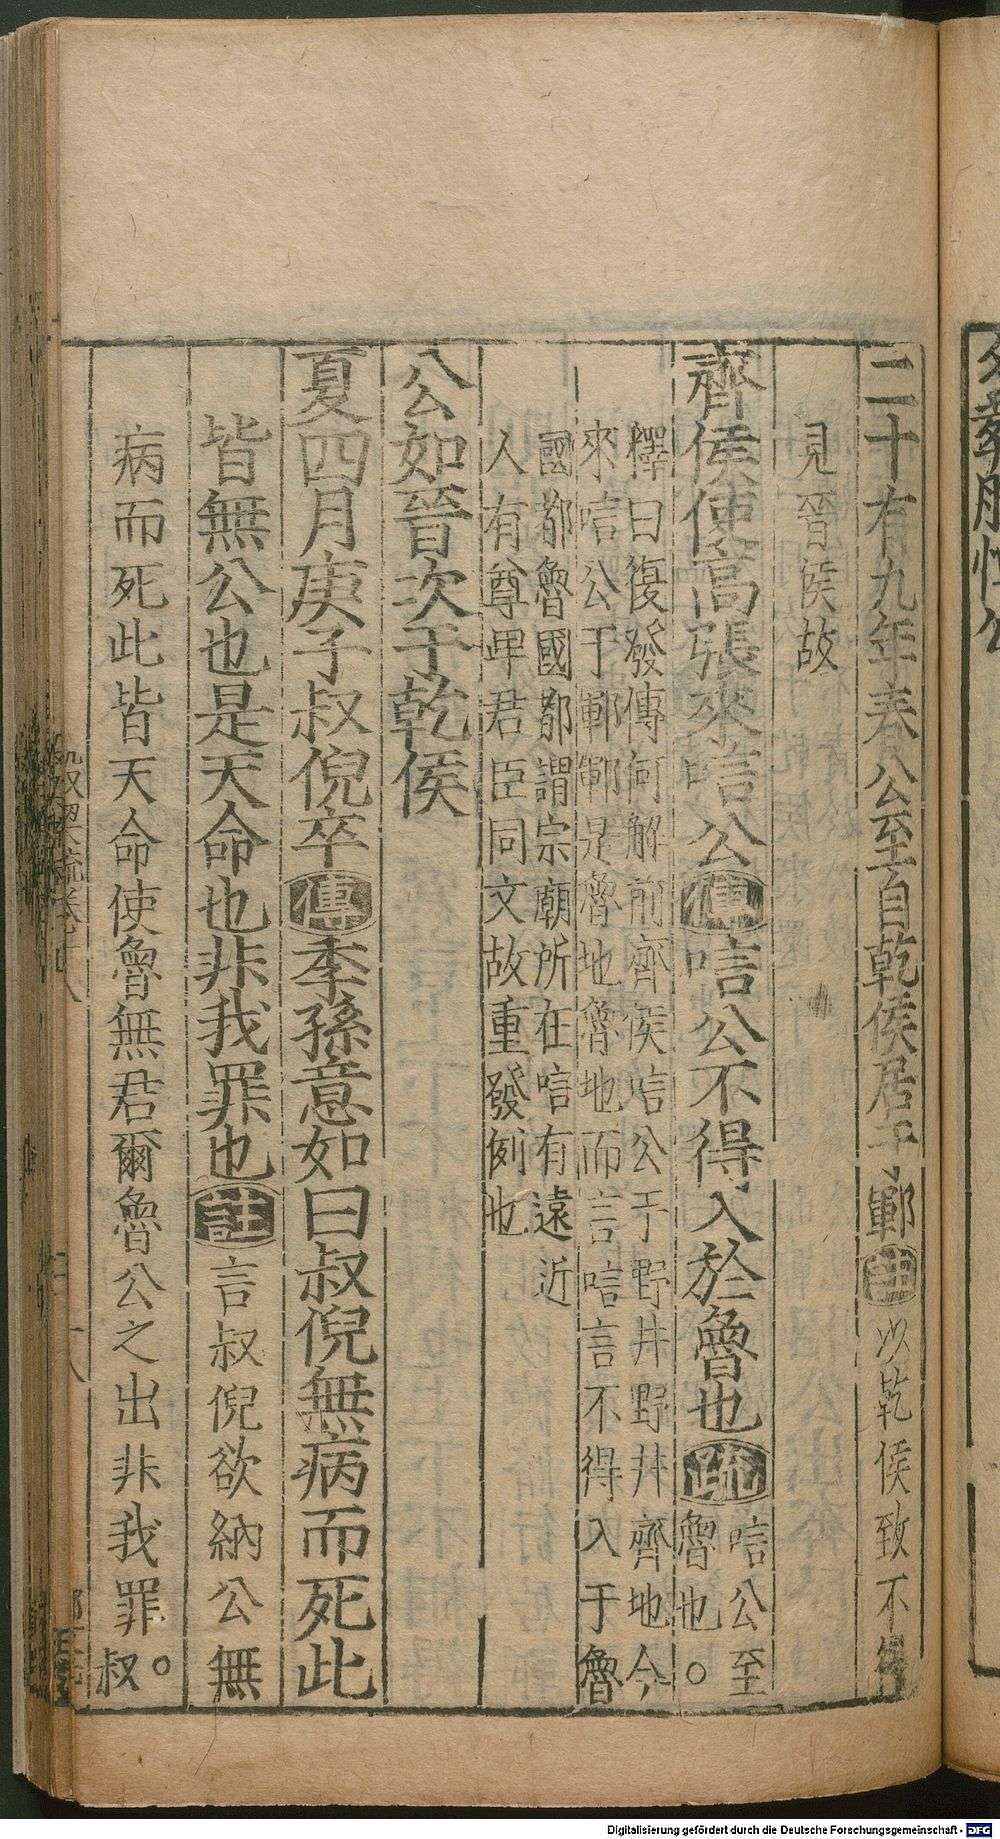 二十有九年春公至自乾侯居于鄆註以乾侯致不得
見晉侯故
齊侯使高張來唁公傳唁公不得入於魯也疏唁公至
魯也○
釋曰復發傳何解前齊侯唁公于野井野井齊地今
來唁公于鄆鄆是魯地魯地而言唁言不得入于魯
國都魯國都謂宗廟所在唁有遠近
人有尊卑君臣同文故重發例也
公如晉次于乾侯
夏四月庚子叔倪卒傳季孫意如曰叔倪無病而死此
皆無公也是天命也非我罪也註言叔倪欲納公無
病而死此皆天命使魯無君爾魯公之出非我罪○叔
Digitalisierung gefördert durch die Deutsche Forschungsgemeinschaft - DFG